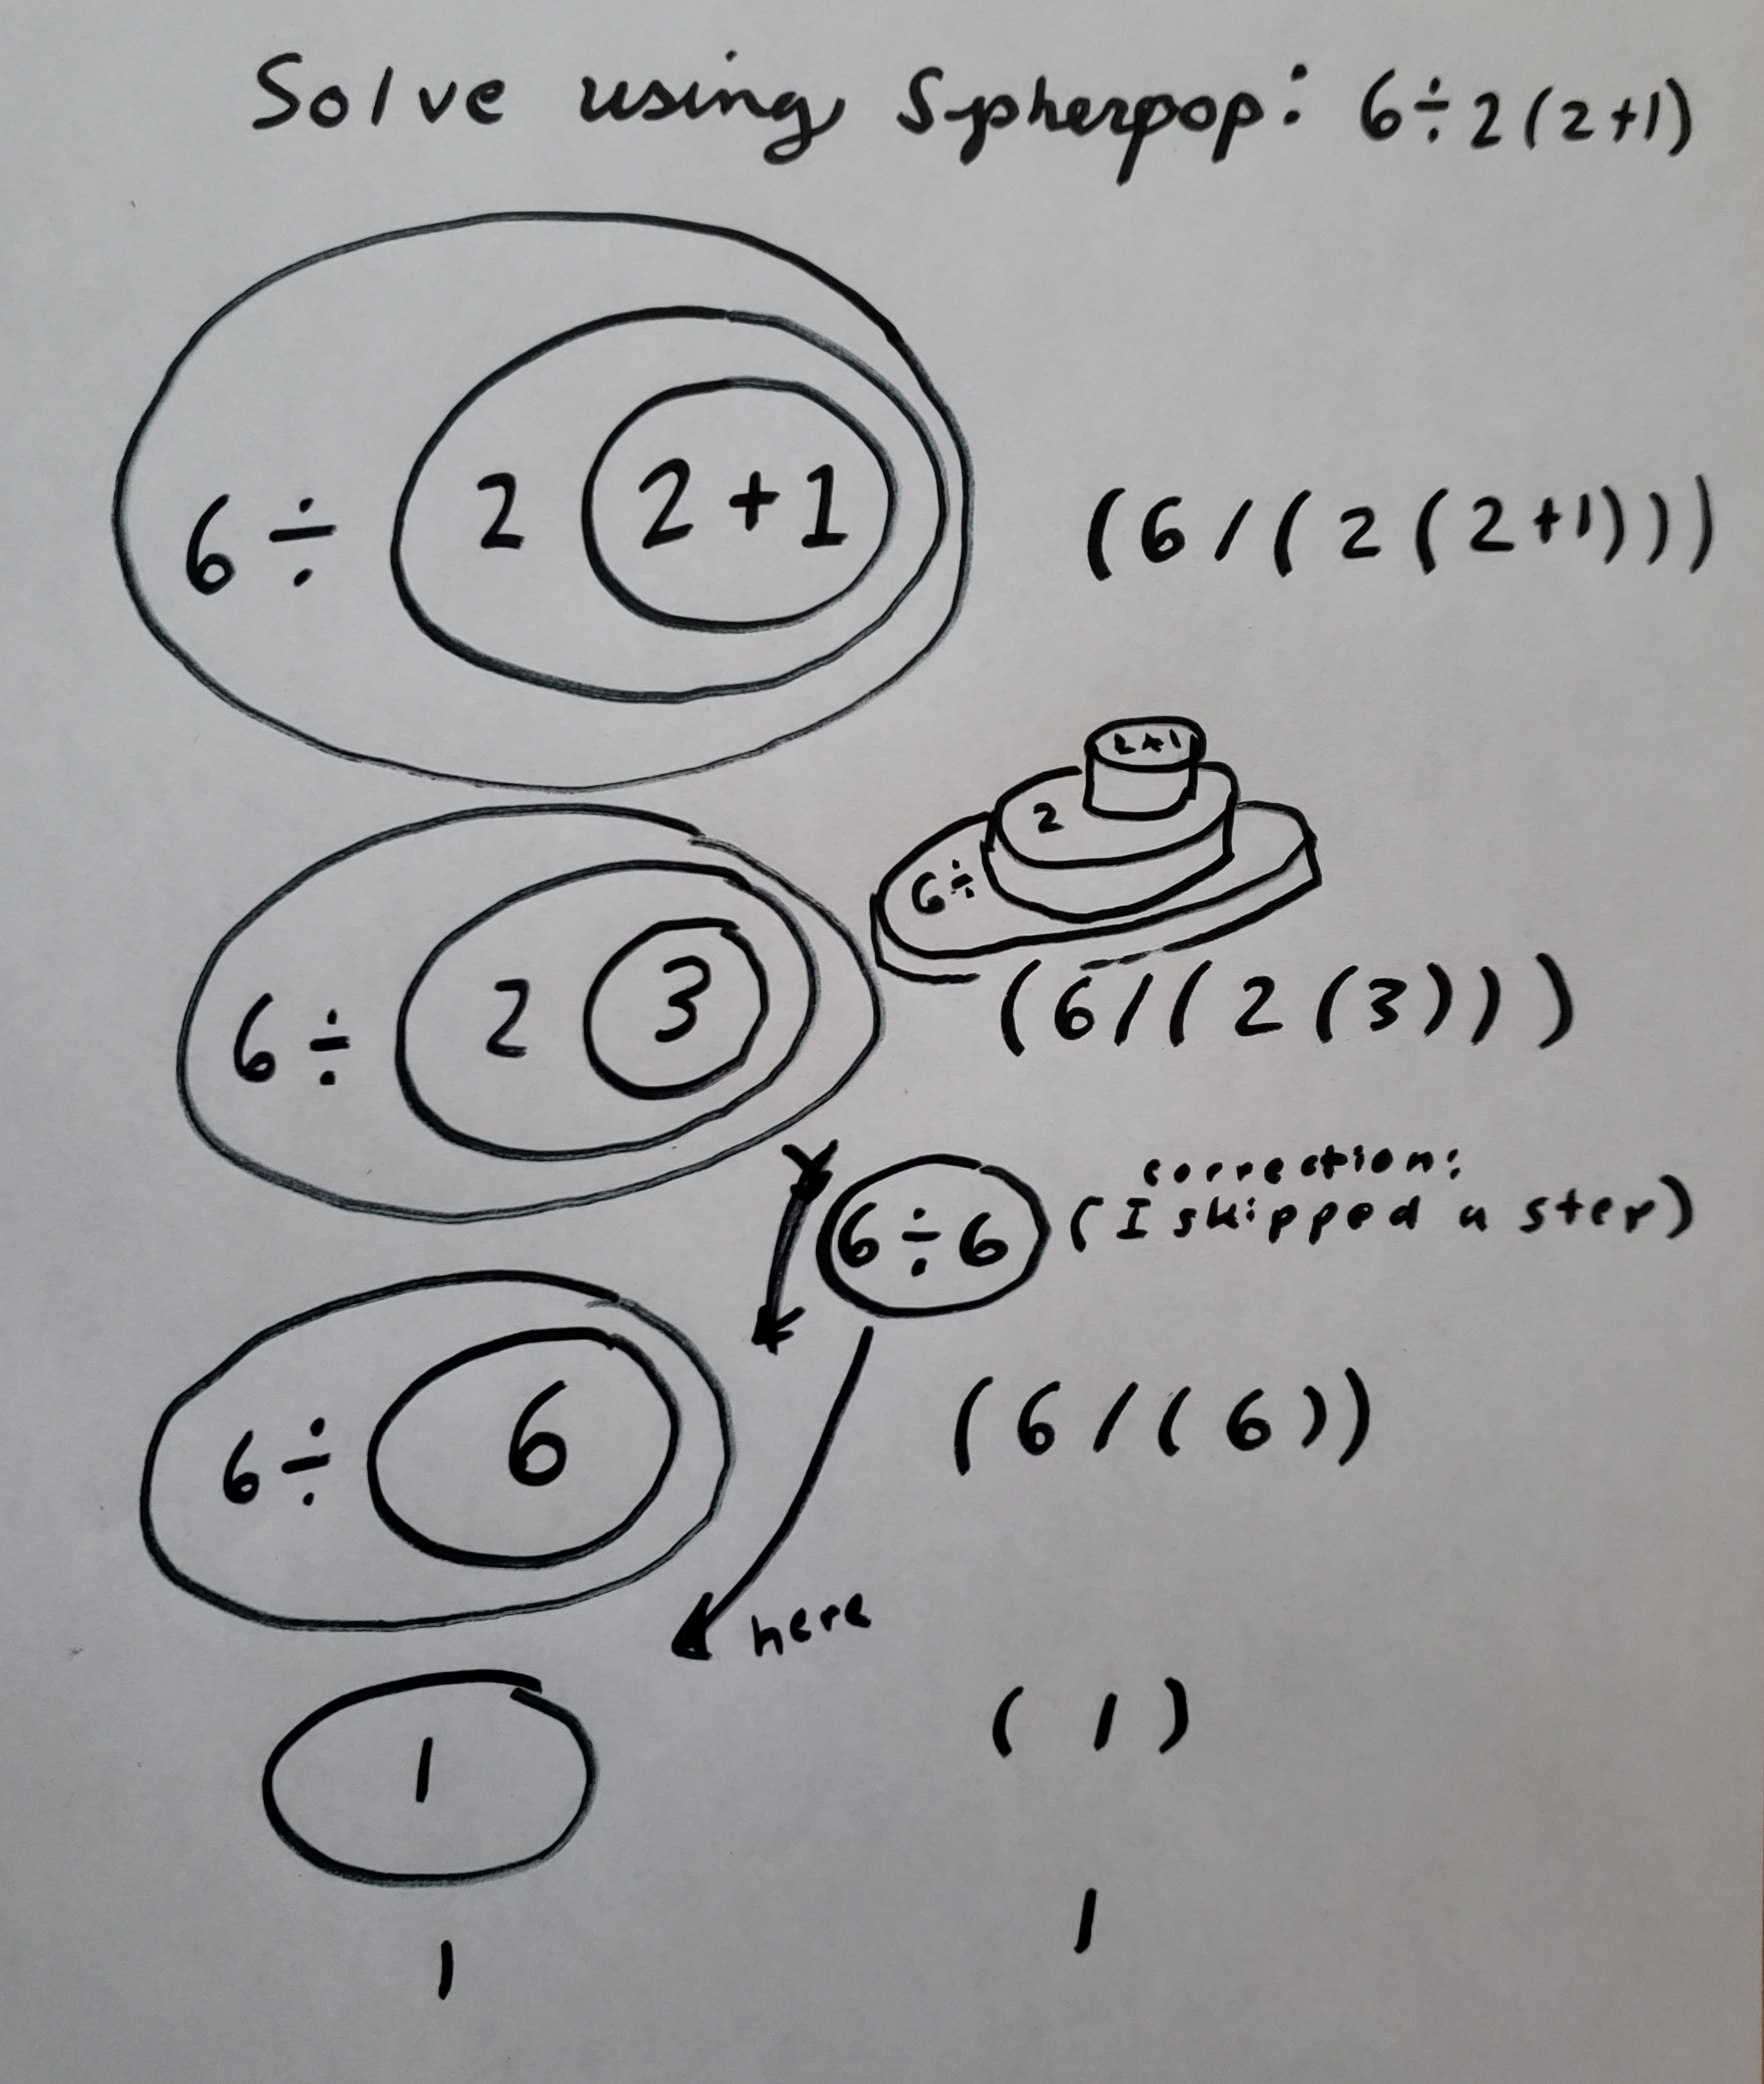 Solve using Spherepop: 6÷2(2+1)
6 ÷ 2 2+1
(6/(2(2+1)))
2+1
2
6÷
6 ÷ 2 3
(6/(2(3)))
correction:
6÷6 (I skipped a step)
6 ÷ 6
(6/(6))
here
1
(1)
1
1